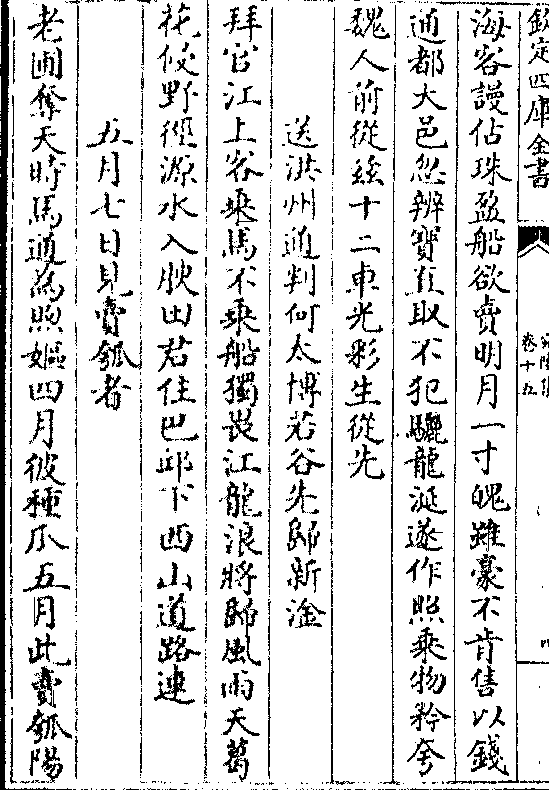 欽定四庫全書
卷十九
海客謾佔珠盈船欲賣明月一寸魄雖豪不肯售以錢
通都大邑忽辨寶直取不犯驪龍涎遂作照乘物矜夸
魏人前從茲十二車光彩生從先
送洪州通判何太博若谷先歸新淦
拜官江上客乘馬不乘船獨畏江龍浪將歸風雨天葛
花傚野徑源水入腴田君住巴邱下西山道路連
五月七日見賣瓠者
老圃奪天時馬通為煦嫗四月彼種瓜五月此賣瓠陽